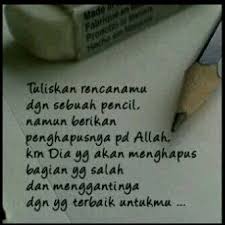 Made in
Fabriqué en
Hecho en
Tuliskan rencanamu
dgn sebuah pencil,
namun berikan
penghapusnya pd Allah,
krn Dia yg akan menghapus
bagian yg salah
dan menggantinya
dgn yg terbaik untukmu ...